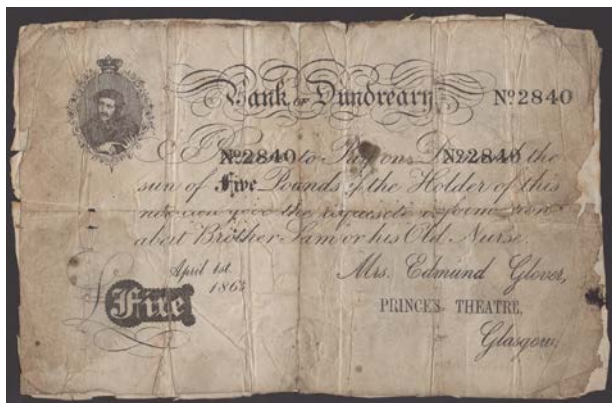 Bank of Dundreary. Nº2840
I Nº2840 to Pay on D Nº2840 the
sum of Five Pounds if the Holder of this
note can give the requisite information
about Brother Sam or his Old Nurse.
April 1st.
1863
Mrs. Edmund Glover,
Five
PRINCE'S THEATRE,
Glasgow.